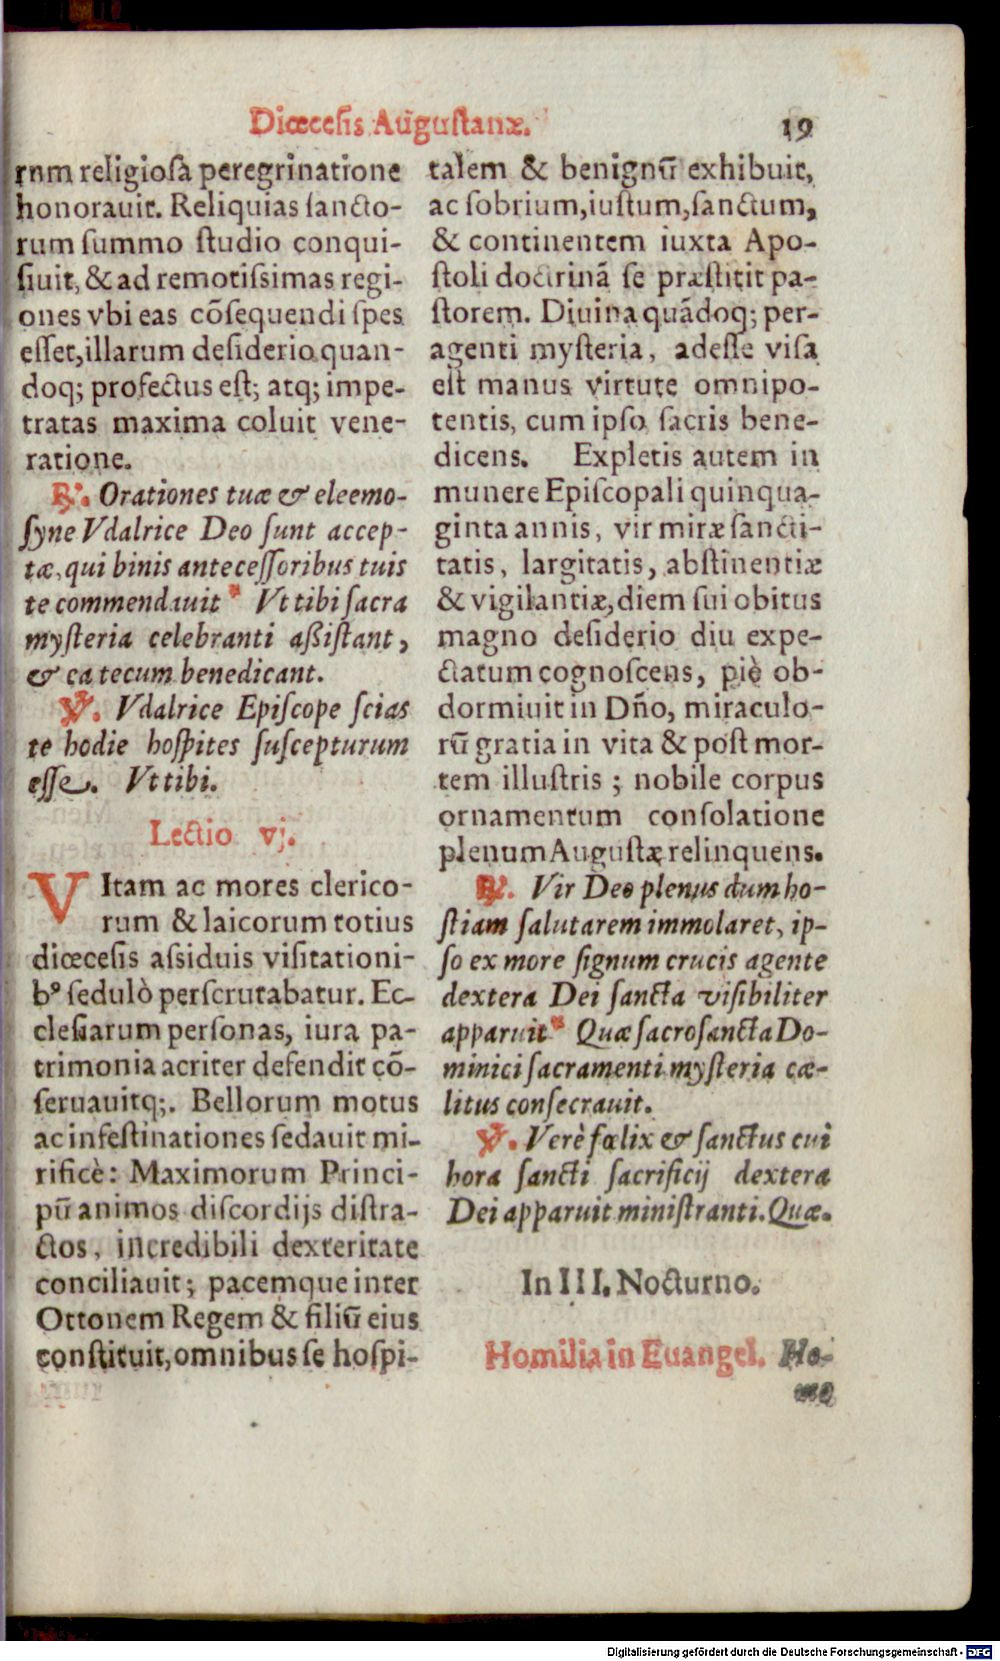 Diœcesis Augustanæ. 19
rum religiosa peregrinatione
honorauit. Reliquias sancto-
rum summo studio conqui-
siuit, & ad remotissimas regi-
ones vbi eas cõsequendi spes
esset, illarum desiderio quan-
doq; profectus est; atq; impe-
tratas maxima coluit vene-
ratione.
℟. Orationes tuæ & eleemo-
syne Vdalrice Deo sunt accep-
tæ, qui binis antecessoribus tuis
te commendauit * Vt tibi sacra
mysteria celebranti aßistant,
& ea tecum benedicant.
℣. Vdalrice Episcope scias
te hodie hospites suscepturum
esse. Vt tibi.
Lectio vj.
VItam ac mores clerico-
rum & laicorum totius
diœcesis assiduis visitationi-
bꝰ sedulò perscrutabatur. Ec-
clesiarum personas, iura pa-
trimonia acriter defendit cõ-
seruauitq;. Bellorum motus
ac infestinationes sedauit mi-
rificè: Maximorum Princi-
pũ animos discordijs distra-
ctos, incredibili dexteritate
conciliauit; pacemque inter
Ottonem Regem & filiũ eius
constituit, omnibus se hospi-
talem & benignũ exhibuit,
ac sobrium, iustum, sanctum,
& continentem iuxta Apo-
stoli doctrinã se præstitit pa-
storem. Diuina quãdoq; per-
agenti mysteria, adesse visa
est manus virtute omnipo-
tentis, cum ipso sacris bene-
dicens. Expletis autem in
munere Episcopali quinqua-
ginta annis, vir miræ sancti-
tatis, largitatis, abstinentiæ
& vigilantiæ, diem sui obitus
magno desiderio diu expe-
ctatum cognoscens, piè ob-
dormiuit in Dño, miraculo-
rũ gratia in vita & post mor-
tem illustris; nobile corpus
ornamentum consolatione
plenum Augustæ relinquens.
℟. Vir Deo plenus dum ho-
stiam salutarem immolaret, ip-
so ex more signum crucis agente
dextera Dei sancta visibiliter
apparuit * Quæ sacrosancta Do-
minici sacramenti mysteria cæ-
litus consecrauit.
℣. Verè fœlix & sanctus cui
hora sancti sacrificij dextera
Dei apparuit ministranti. Quæ.
In III. Nocturno.
Homilia in Euangel. Ho-
Digitalisierung gefördert durch die Deutsche Forschungsgemeinschaft - DFG